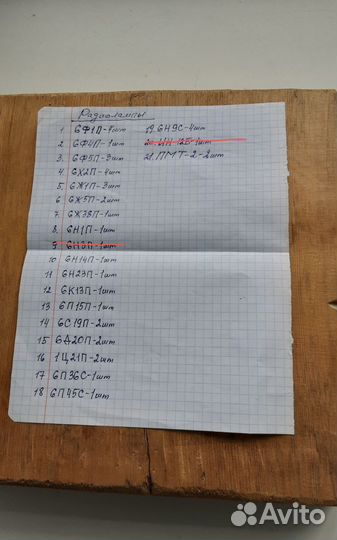 Радиолампы
1. 6Ф1П-4шт
2 6Ф4П-1шт
3. 6Ф5П-3шт
4. 6Х2П-4шт
5. 6Ж1П-3шт
6 6Ж5П-2шт
7 6Ж38П-1шт
8. 6Н1П-1шт
9 6Н3П-1шт
10 6Н14П-1шт
11 6Н23П-1шт
12 6К13П-1шт
13 6П15П-1шт
14 6С19П-2шт
15 6Д20П-2шт
16 1Ц21П-2шт
17 6П36С-1шт
18 6П45С-1шт
19. 6Н9С-4шт
20. ИН-12Б-1шт
21. ПМТ-2-2шт
Avito